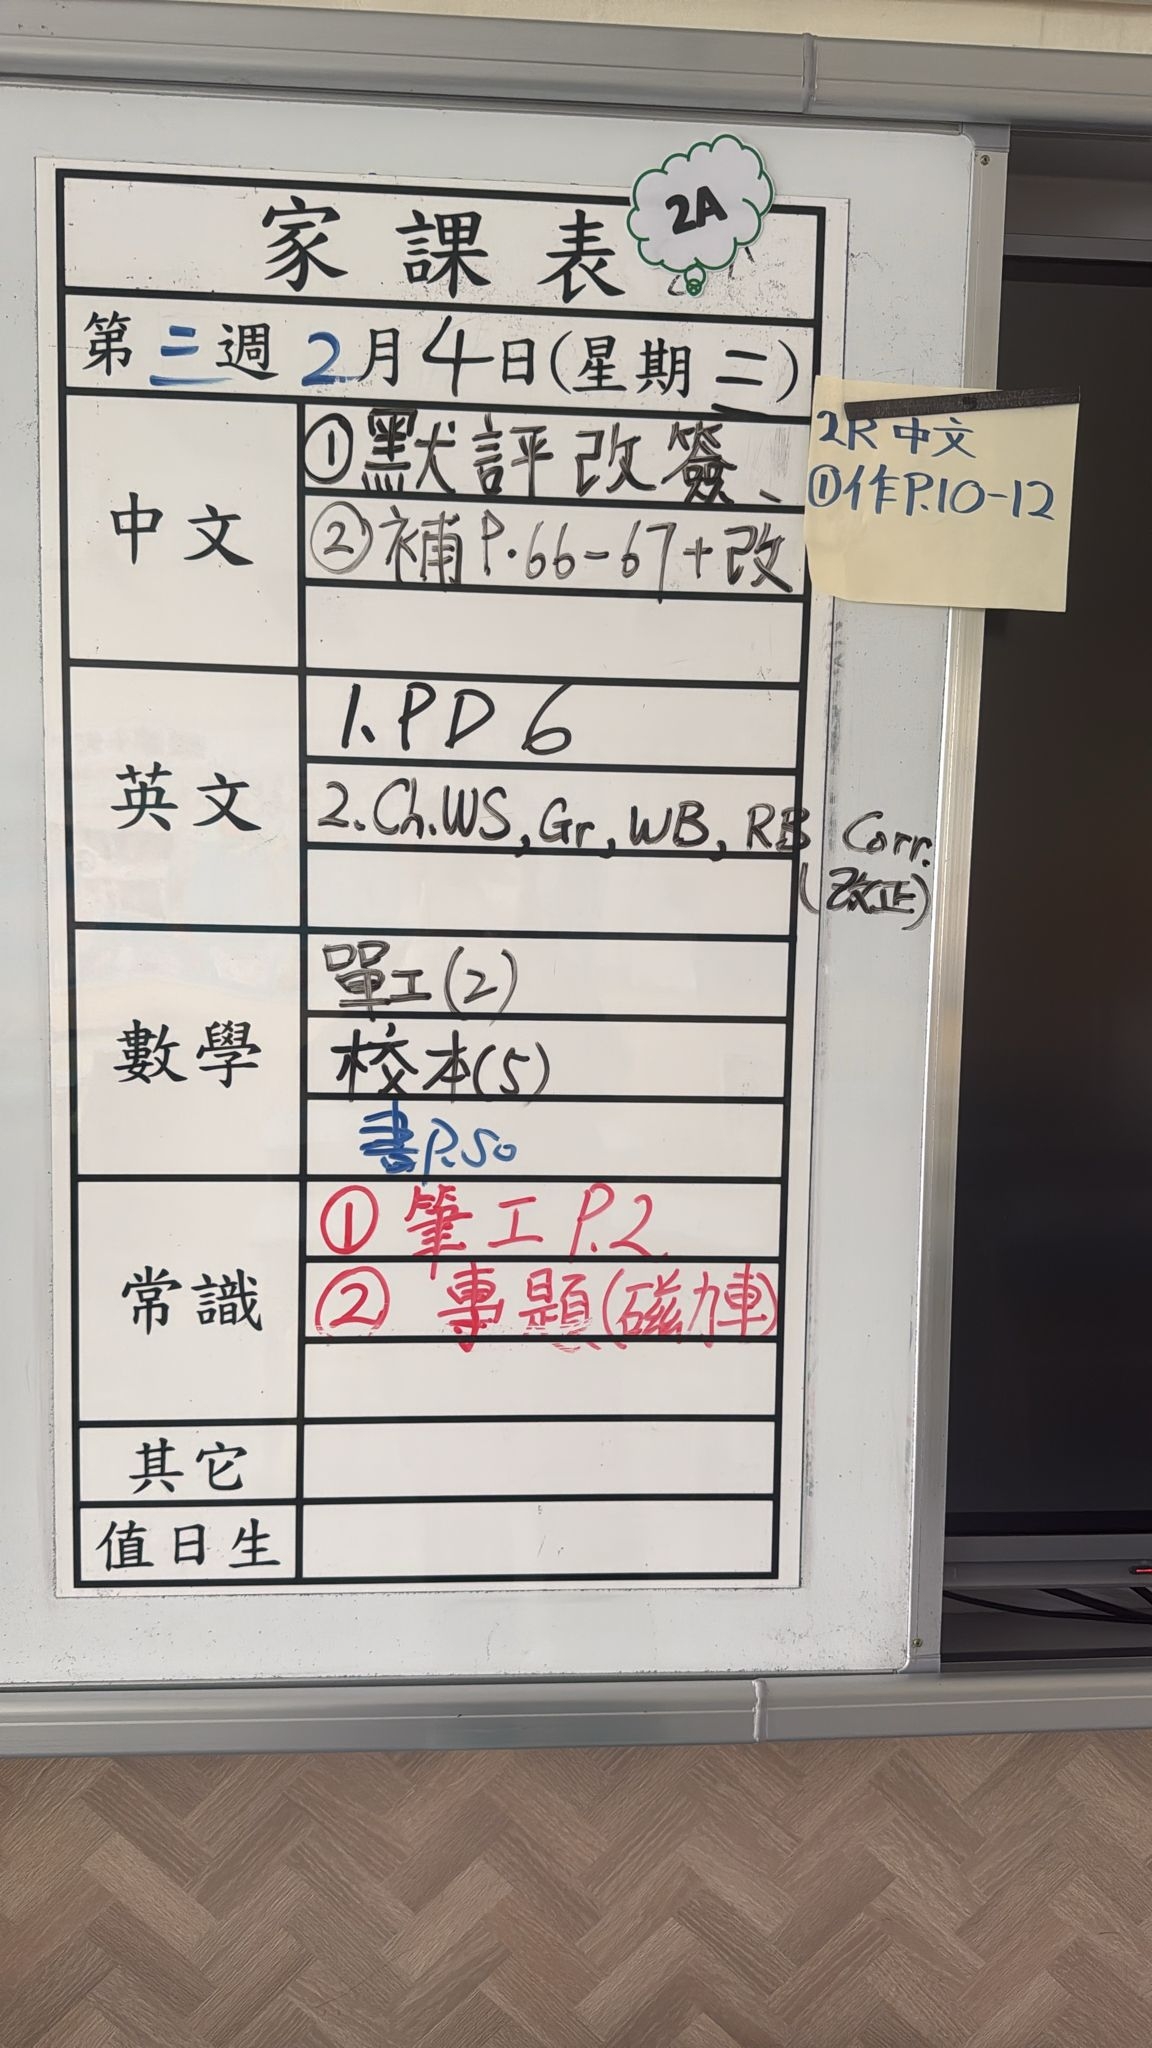 2A
家課表
第二週 2月4日(星期二)
中文
①默評改簽、
②補P.66-67+改
2R中文
①作P.10-12
英文
1.PD6
2.Ch.WS, Gr, WB, RB Corr.
(改正)
數學
單工(2)
校本(5)
書P.50
常識
①筆工P.2
②專題(磁力車)
其它
值日生